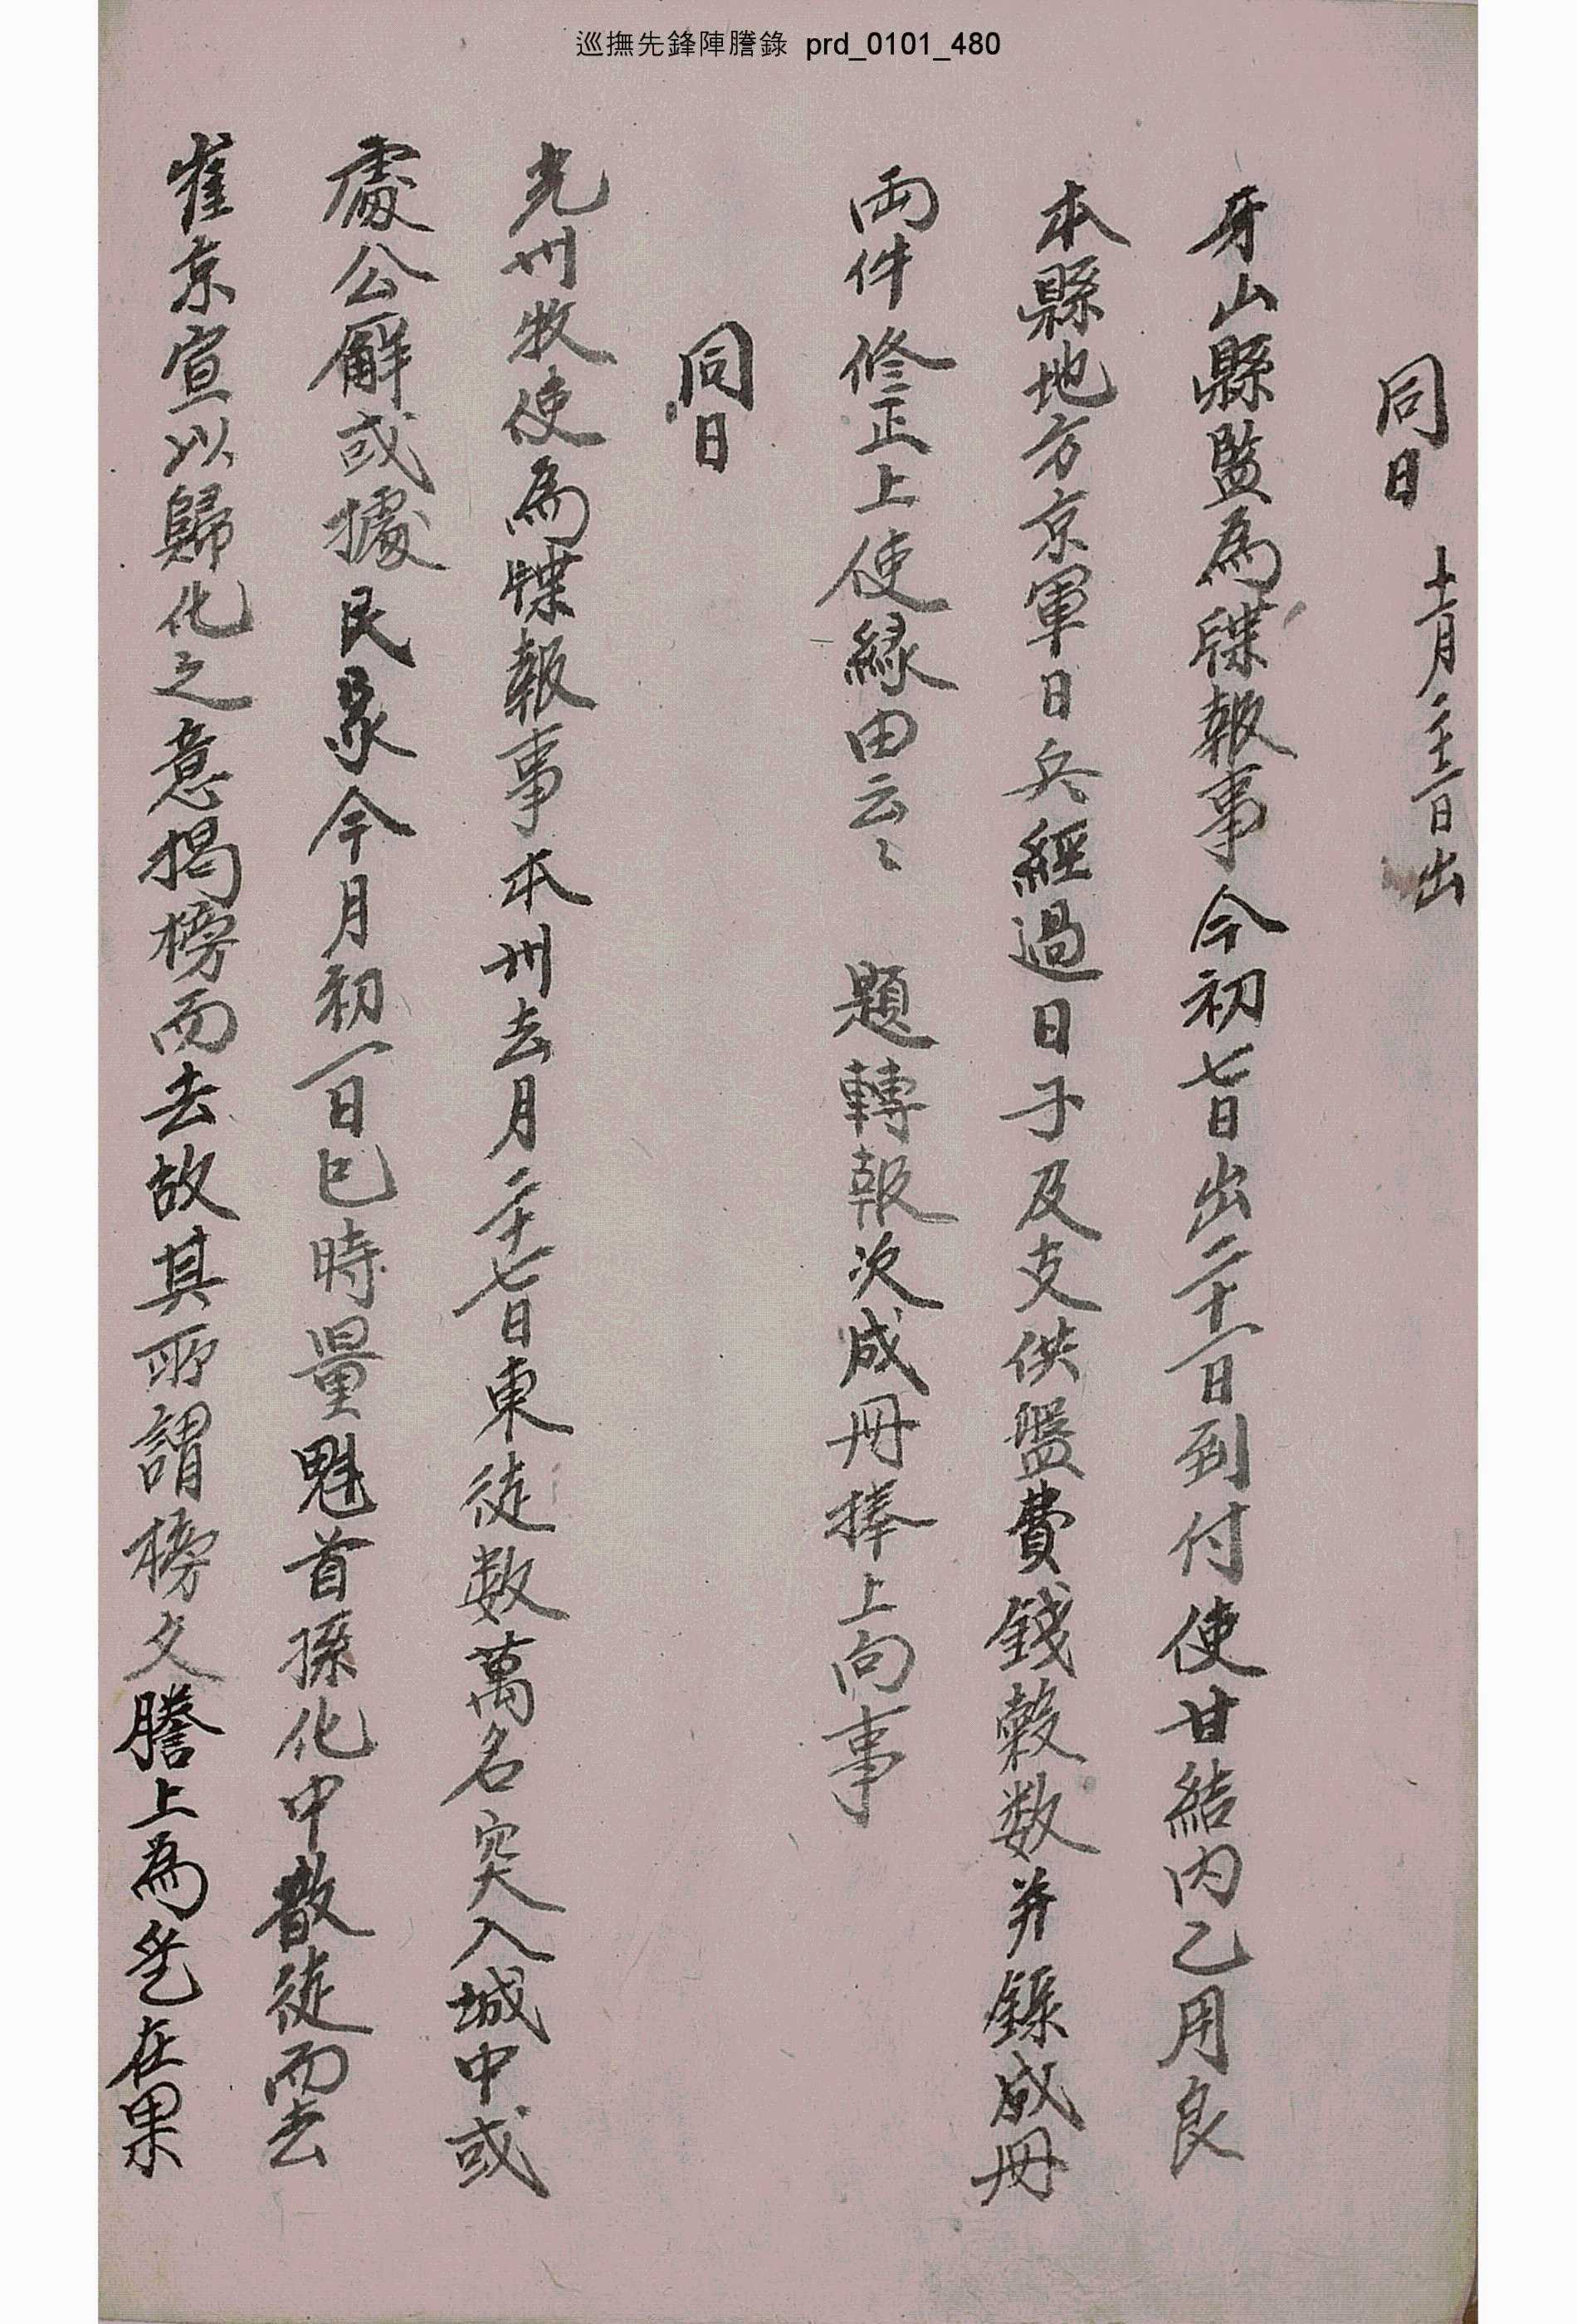 巡撫先鋒陣謄錄 prd_0101_480
同日 十二月二十二日出
牙山縣監為牒報事今初七日出二十一日到付使甘結內乙用良
本縣地方京軍日兵經過日子及支供盤費錢穀数並錄成冊
両件修正上使緣由云云 題轉報次成冊捧上向事
同日
光州牧使為牒報事本州去月二十七日東徒數萬名突入城中或
處公廨或據民家今月初一日巳時量魁首孫化中散徒而去
崔京宣以歸化之意揭榜而去故其所謂榜文謄上為乎乙在果